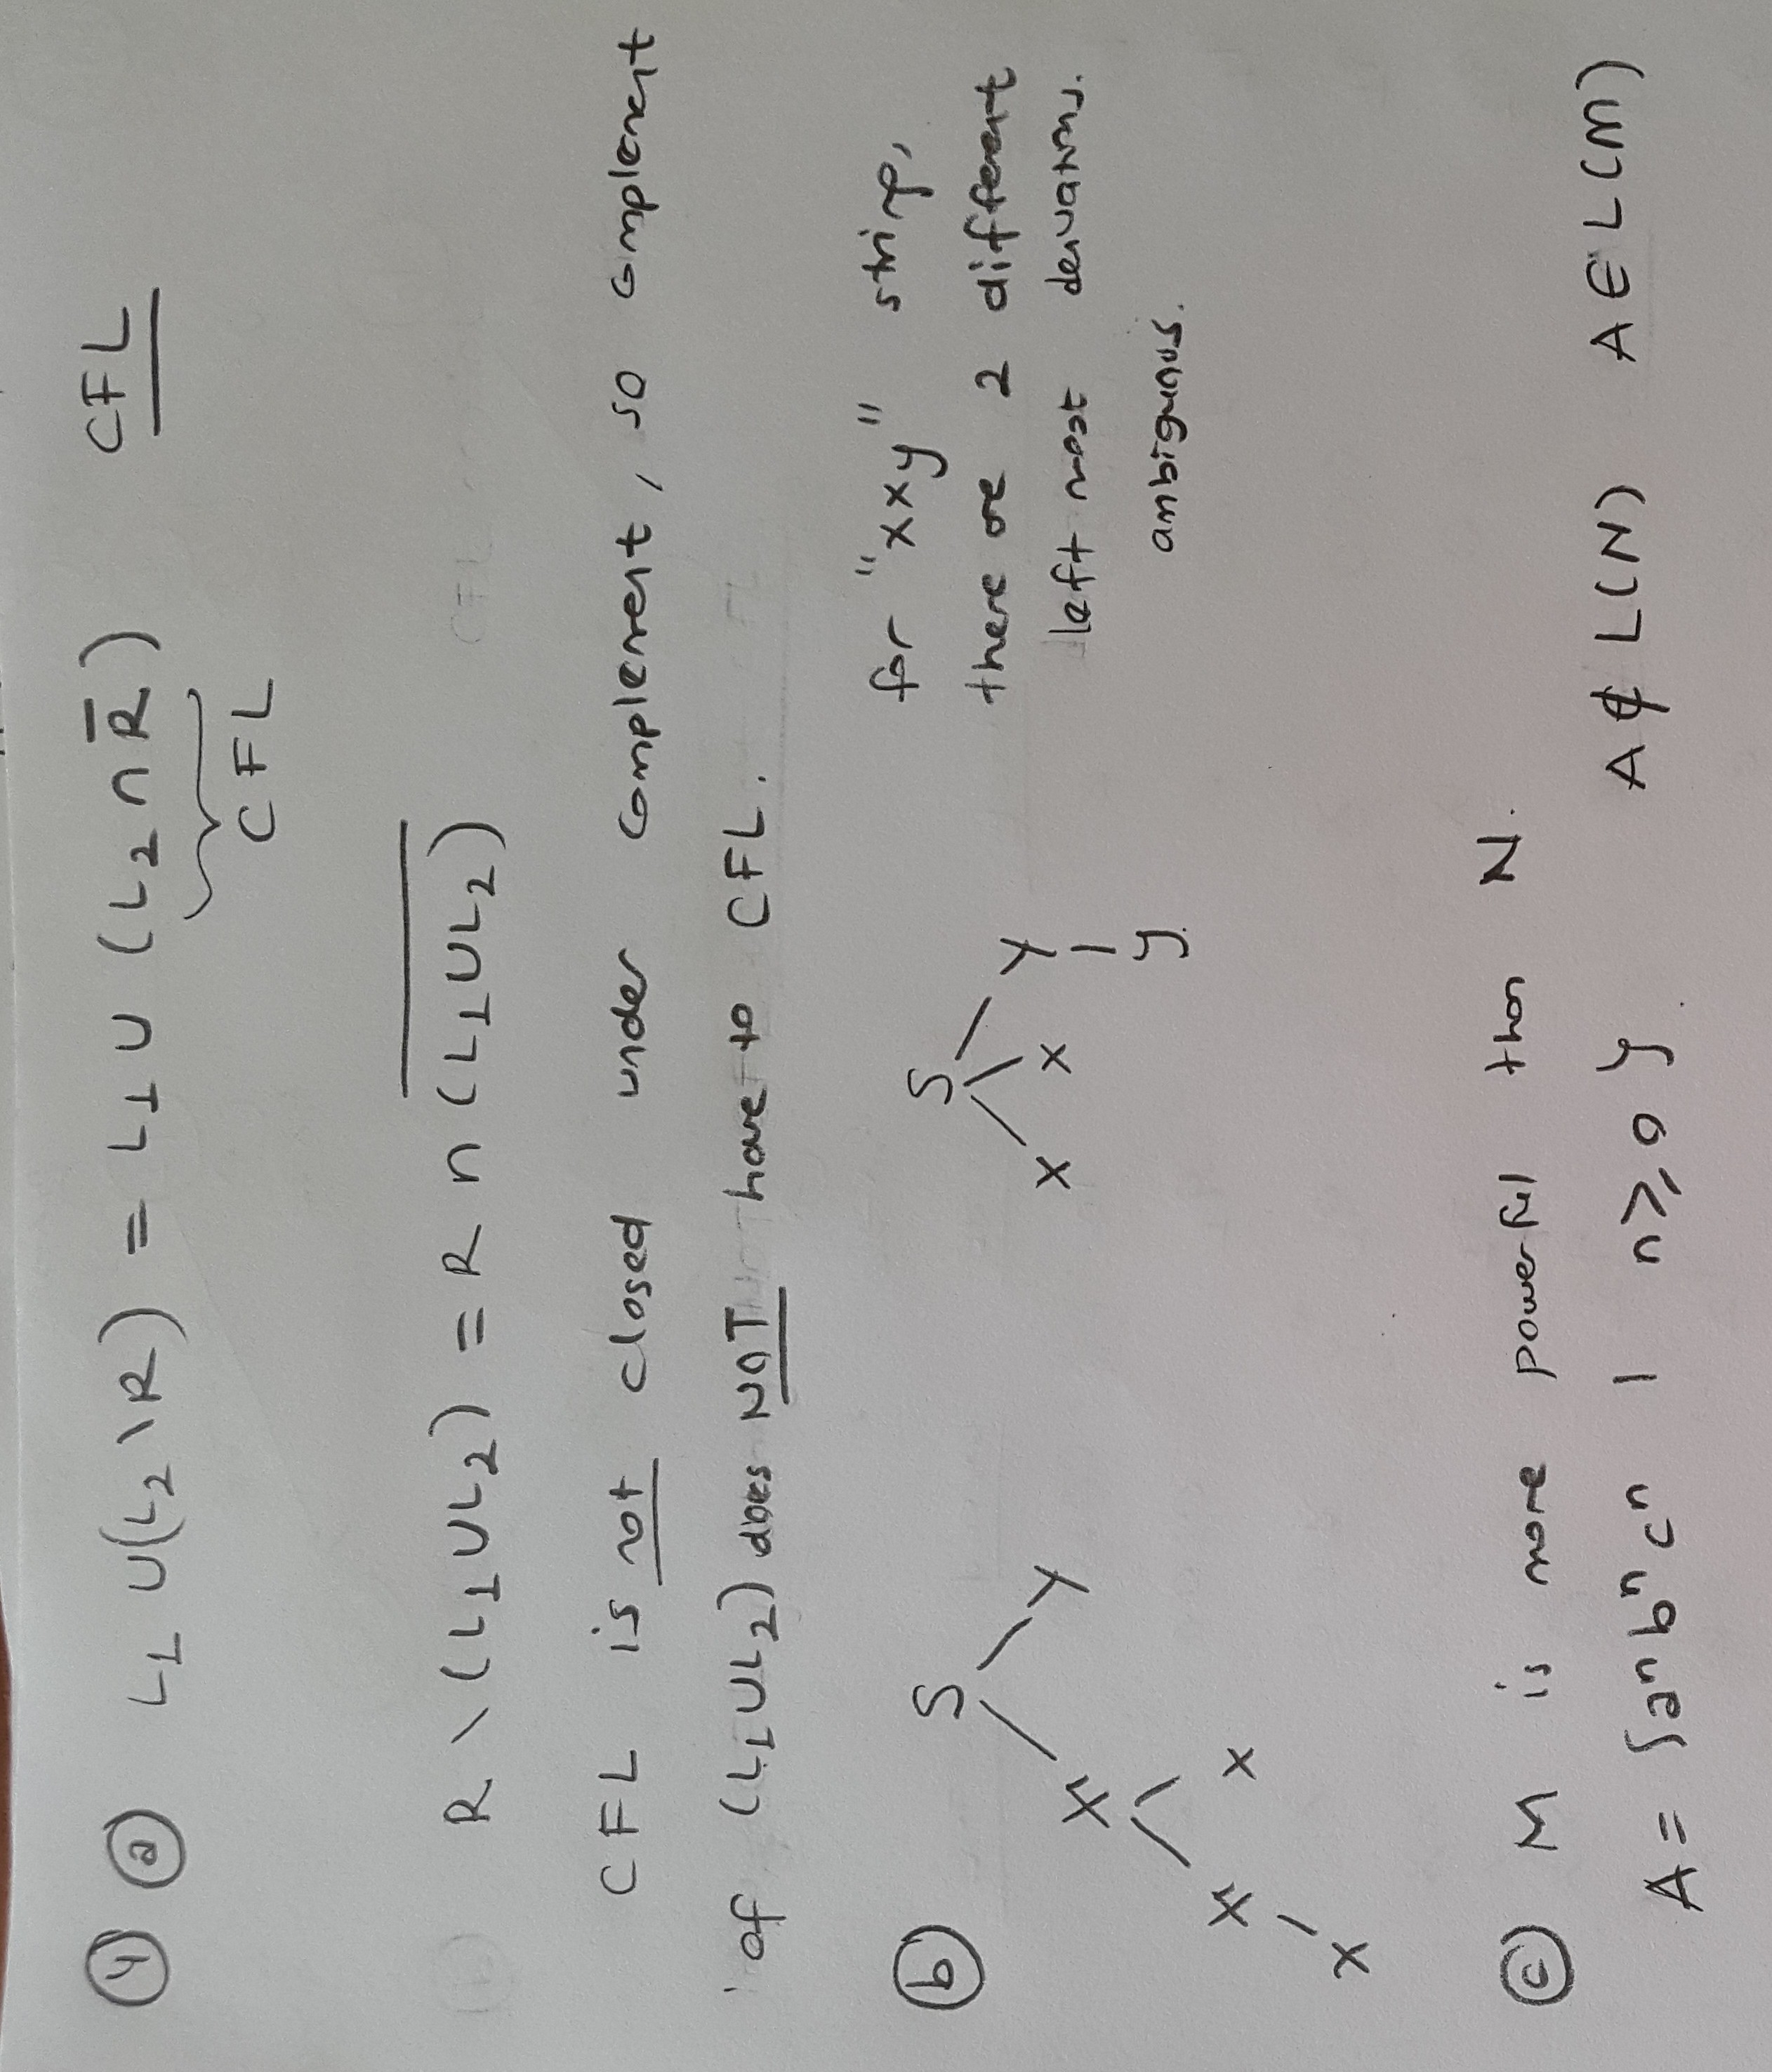 ④ ⓐ L₁ ∪(L₂\R) = L₁ ∪ (L₂∩R̅) CFL
CFL
R \ (L₁∪L₂) = R ∩ \overline{(L₁∪L₂)}
CFL is not closed under complement, so complement
of (L₁∪L₂) does NOT have to CFL.
ⓑ S S for "xxy" string,
X Y x x Y there are 2 different
y left most derivations.
X x ambiguous.
x
ⓒ M is more powerful than N.
A = {aⁿbⁿcⁿ | n⩾0}. A ∉ L(N) A ∈ L(M)